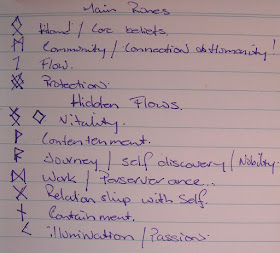 Main Runes
ᛟ / Core beliefs.
ᛗ Community / Connection of Humanity!
Flow.
Protection.
Hidden Flows.
◇ Vitality.
ᚹ Contentenment.
ᚱ Journey / self discovery / Nobility.
ᛞ Work / Perserverance...
ᚷ Relationship with Self.
ᚾ Containment.
ᚲ illumination / Passion.